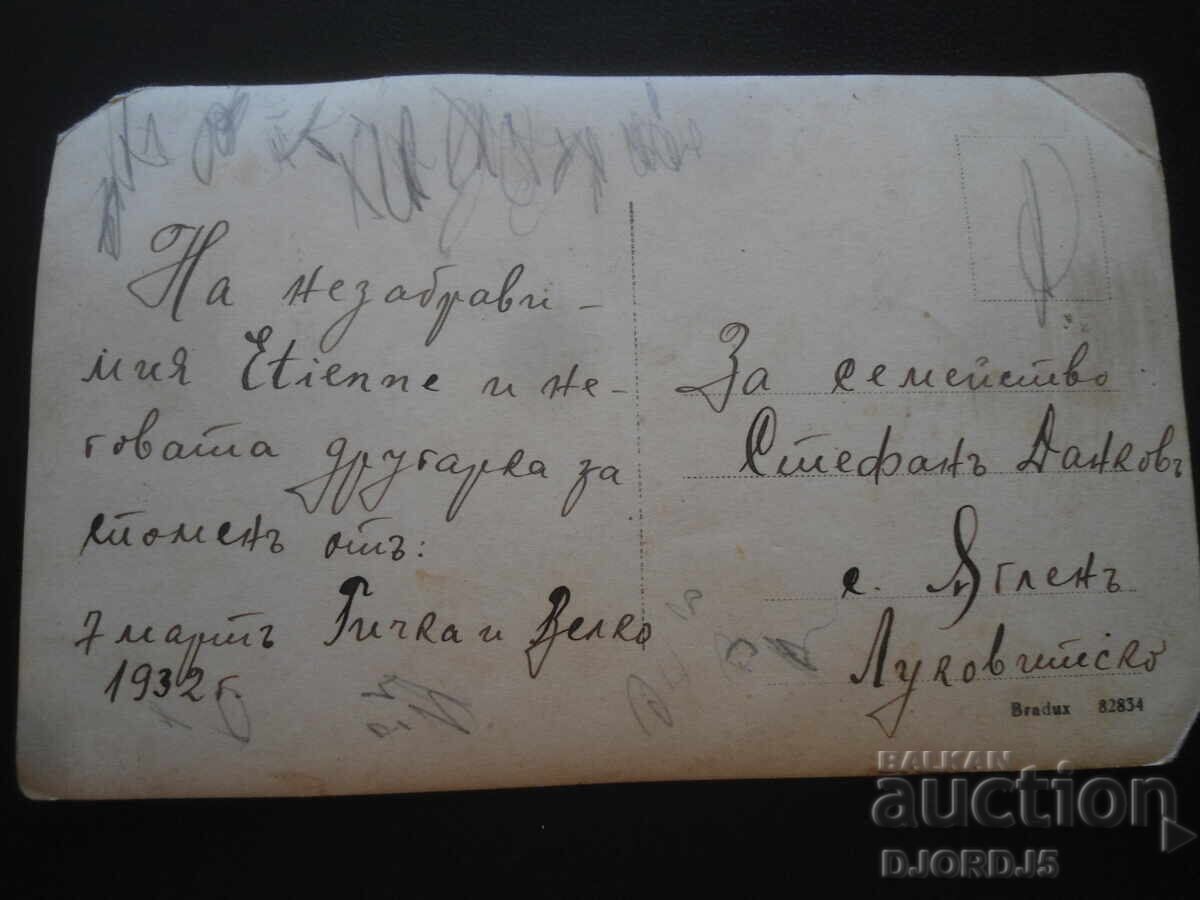 На незабрави-
мия Etienne и не-
говата другарка за
споменъ отъ:
7 мартъ Гичка и Велко
1932 г.
За семейство
Стефанъ Данковъ
с. Ягленъ
Луковитско
Bradux 82834
BALKAN
auction
DJORDJ5